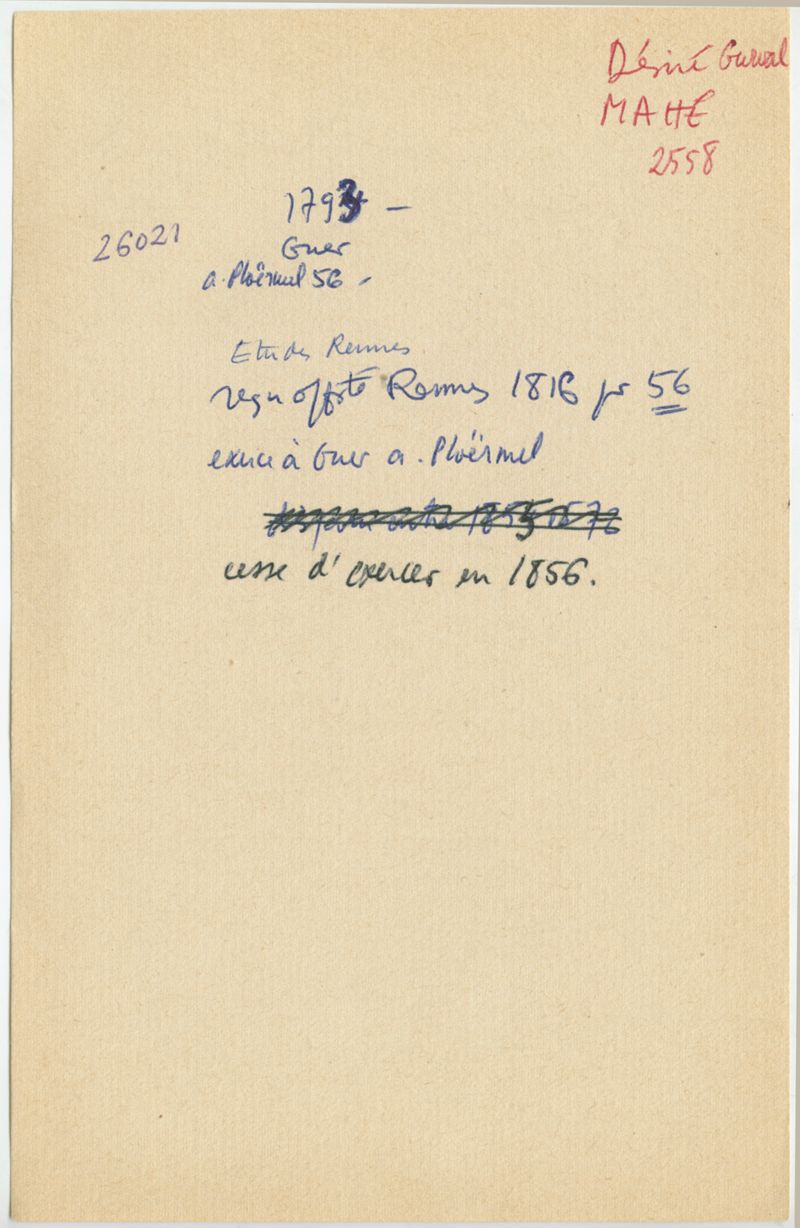 Désiré Gurval
MAHÉ
2558
1793 -
26021
Guer
a. Ploërmel 56 -
Etudes Rennes
reçu off sté Rennes 1816 pr 56
exerce à Guer a. Ploërmel
cesse d'exercer en 1856.